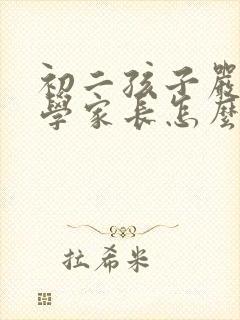 初二孩子嚴
學家長怎麼
拉希米